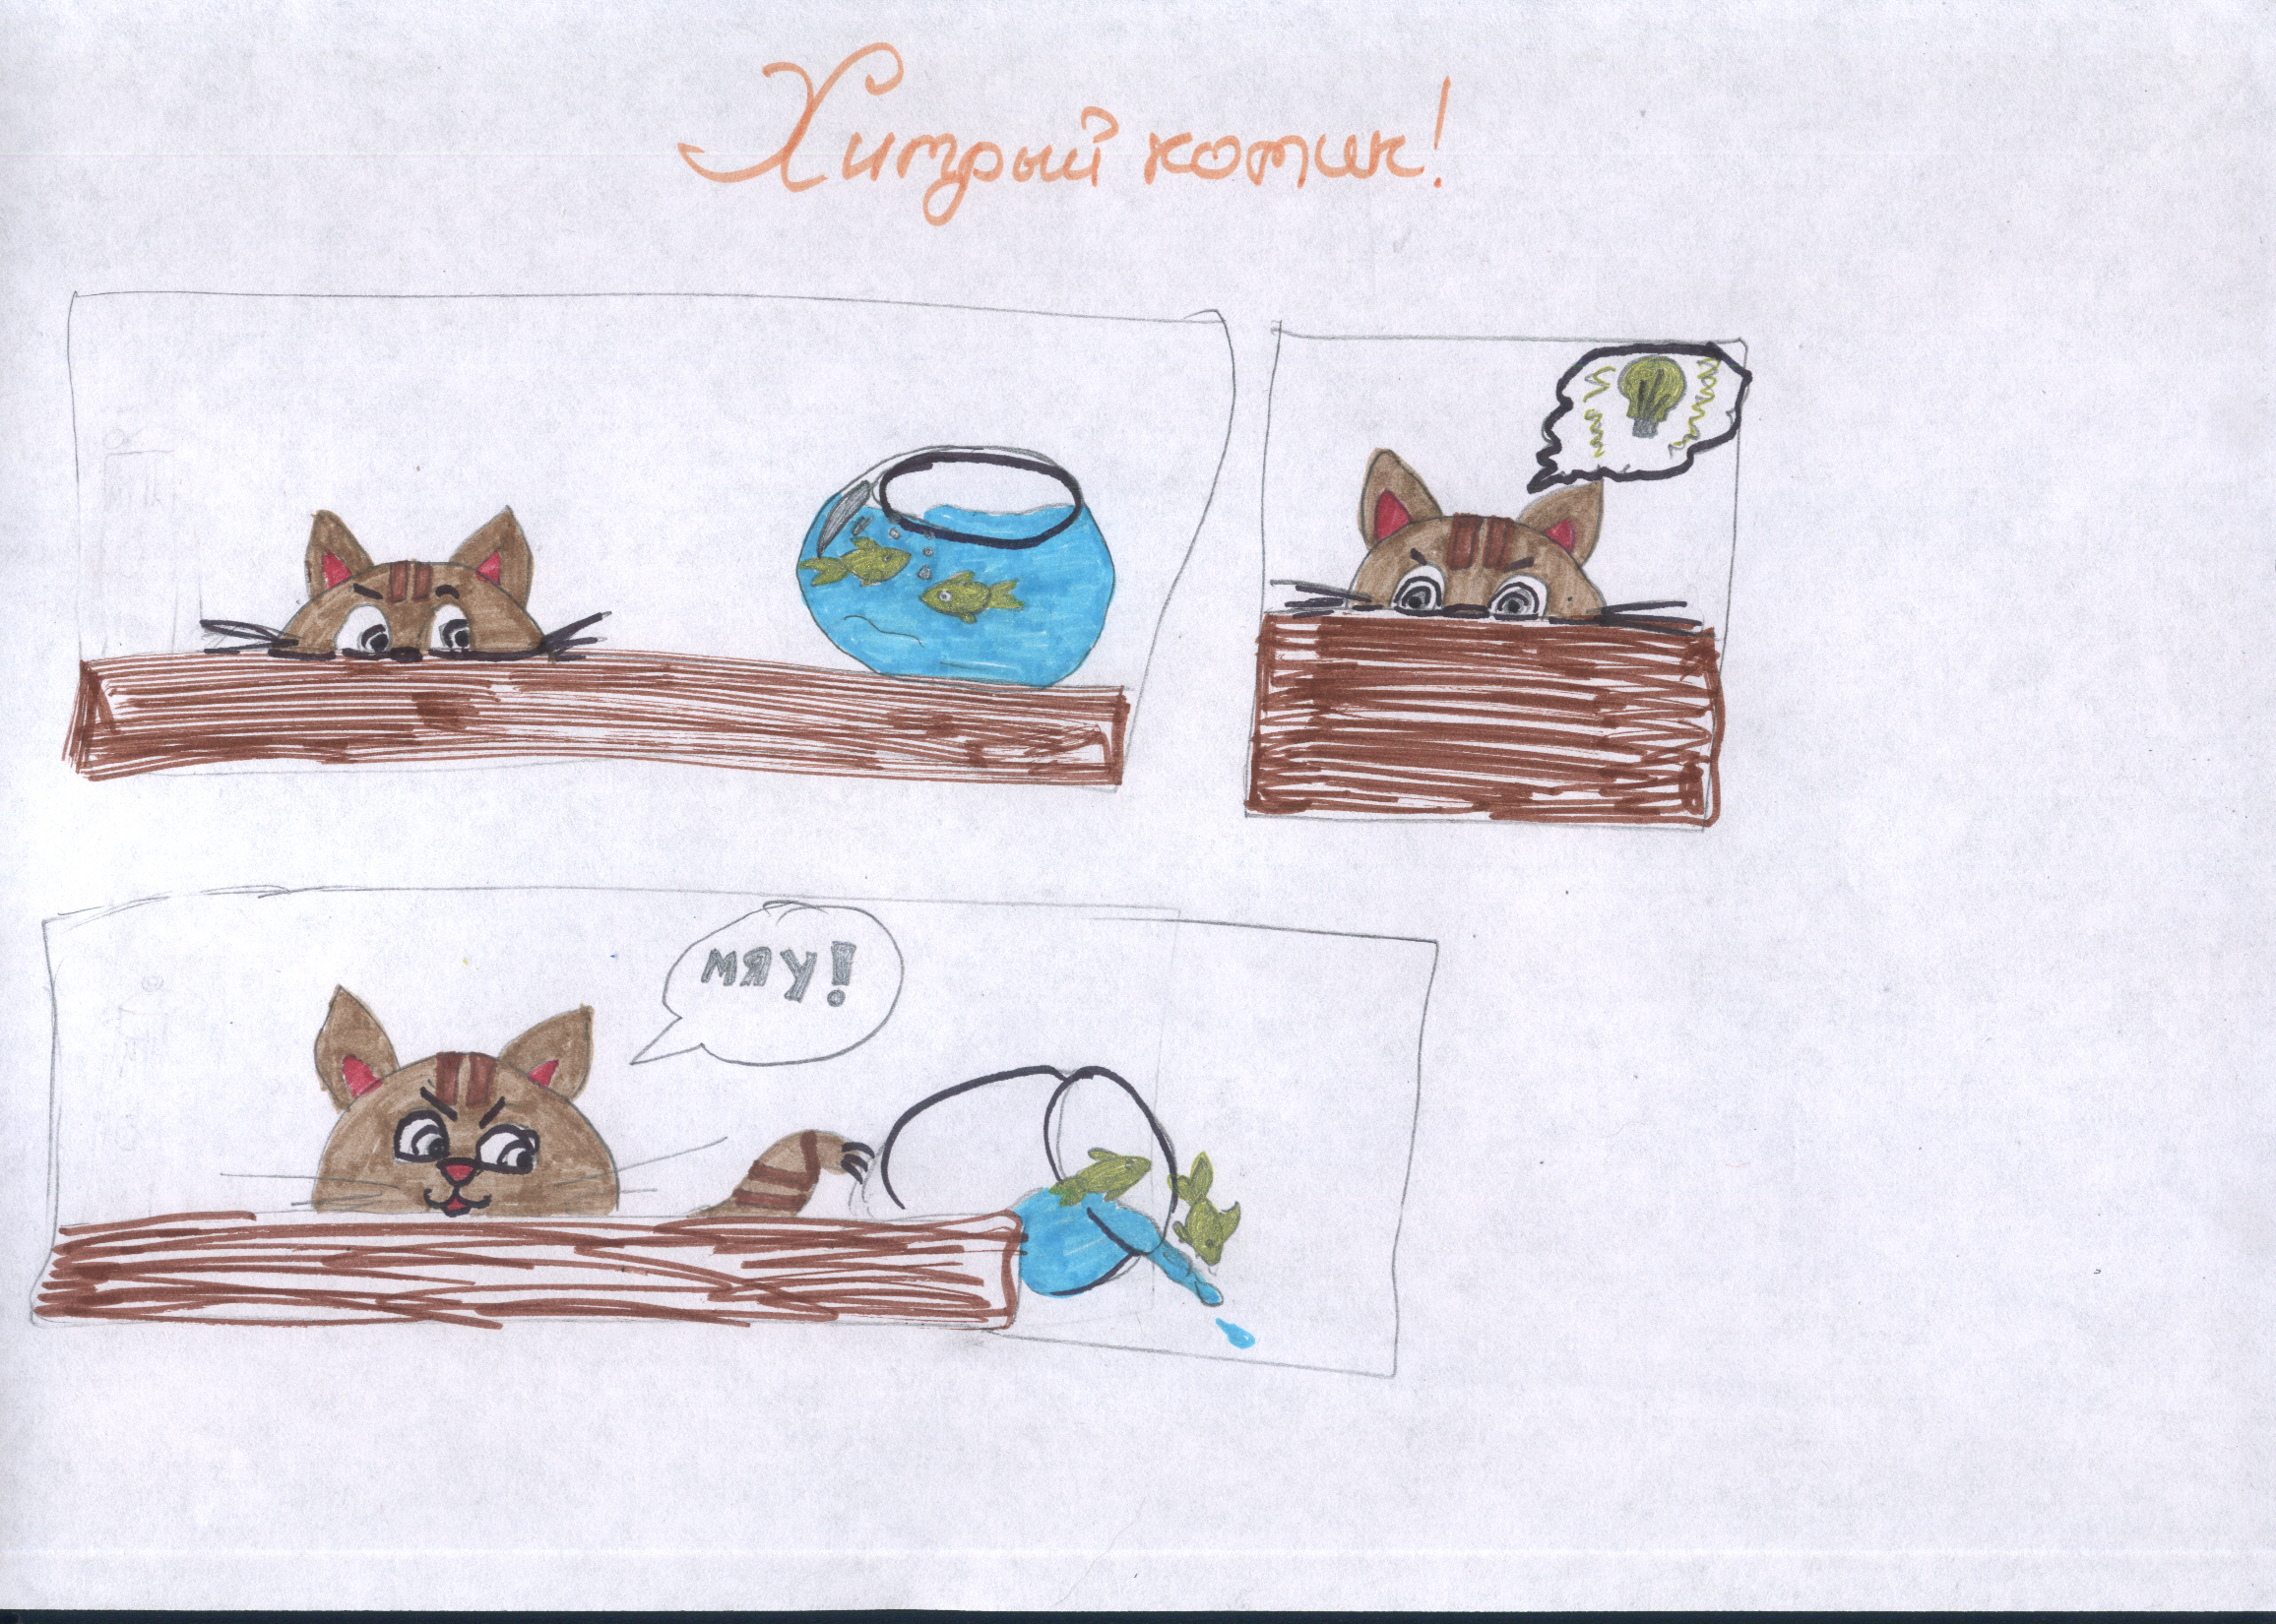 Хитрый котик!
мяу!